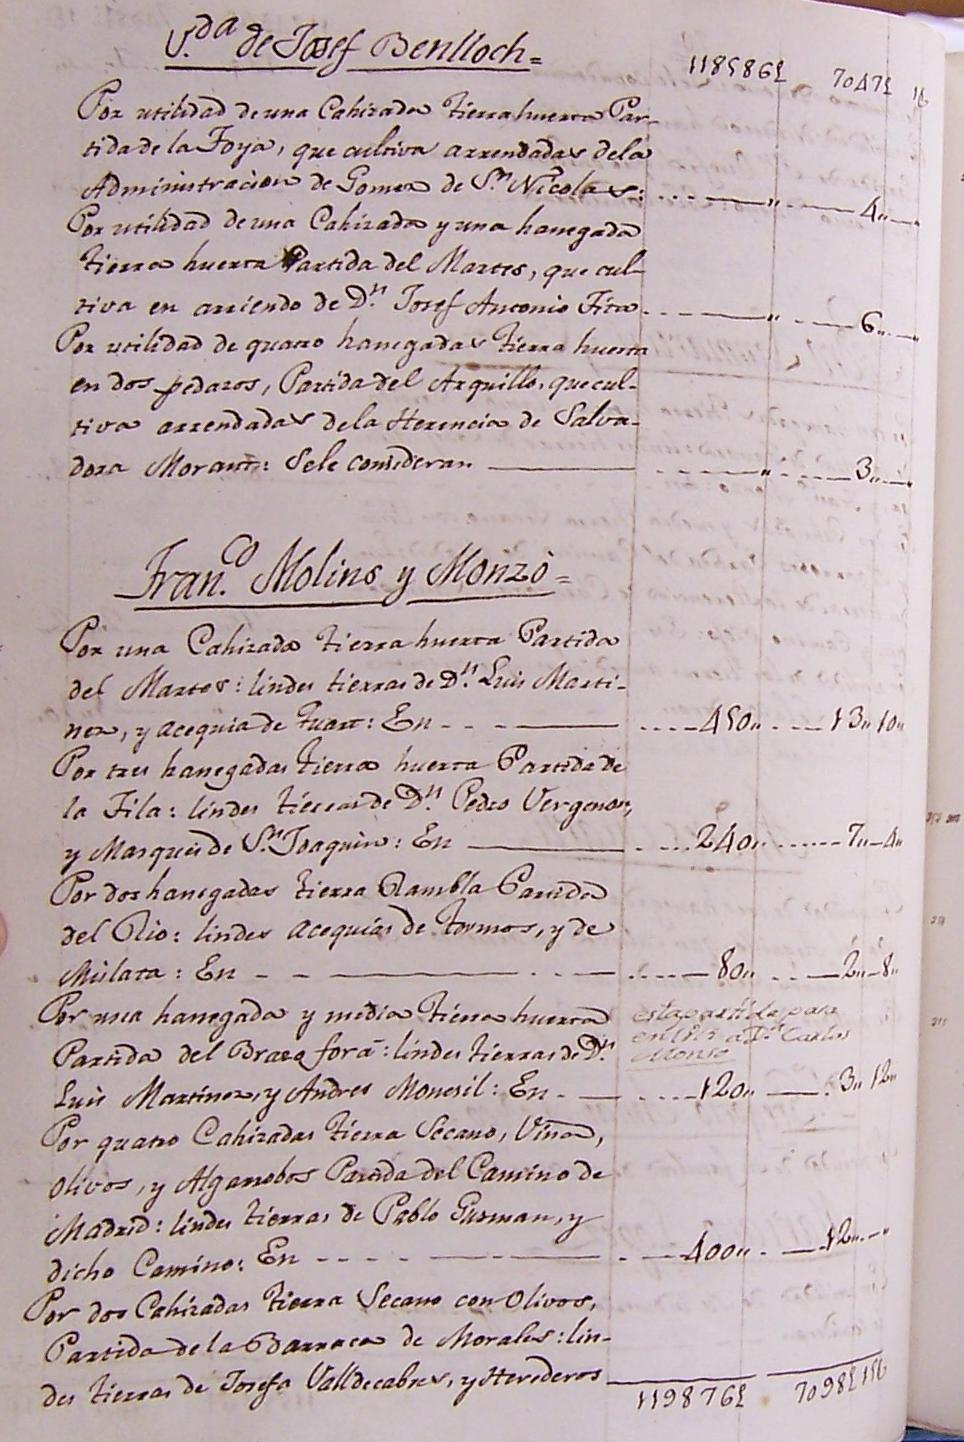 V.da de Josef Benlloch= 118586£ 7047£
Por utilidad de una Cahizada tierra huerta Par-
tida de la Foya, que cultiva arrendadas dela
Administracion de Gomez de S.n Nicolas: " 4"
Por utilidad de una Cahizada y una hanegada
tierra huerta Partida del Martes, que cul-
tiva en arriendo de D.n Josef Antonio Fita " 6"
Por utilidad de quatro hanegadas tierra huerta
en dos pedazos, Partida del Arquillo, que cul-
tiva arrendadas dela Herencia de Salva-
dora Morant: Sele consideran " 3"
Fran.co Molins y Monzó=
Por una Cahizada tierra huerta Partida
del Martes: lindes tierras de D.n Luis Marti-
nez, y acequia de Tuart: En 450" 13" 10"
Por tres hanegadas tierra huerta Partida de
la Fila: lindes tierras de D.n Pedro
y Marques de S.n Joaquin: En 240" 7" 4"
Por dos hanegadas tierra Rambla Partida
del Rio: lindes acequias de Tormos, y de
Mislata: En 80" 2" 8"
Por una hanegada y media tierra huerta esta partida pasa
Partida del Braç fora: lindes tierras de D.n en 1815 a D.n Carlos
Monso
Luis Martinez, y Andres Monesil: En 120" 3" 12"
Por quatro Cahizadas tierra Secano, Viña,
olivos, y Algarrobos Partida del Camino de
Madrid: lindes tierras de Pablo Gusman, y
dicho Camino: En 400" 12" "
Por dos Cahizadas tierra Secano con olivos,
Partida de la Barraca de Morales: lin-
des tierras de Josefa Valldecabres, y Herederos 119876£ 7098£